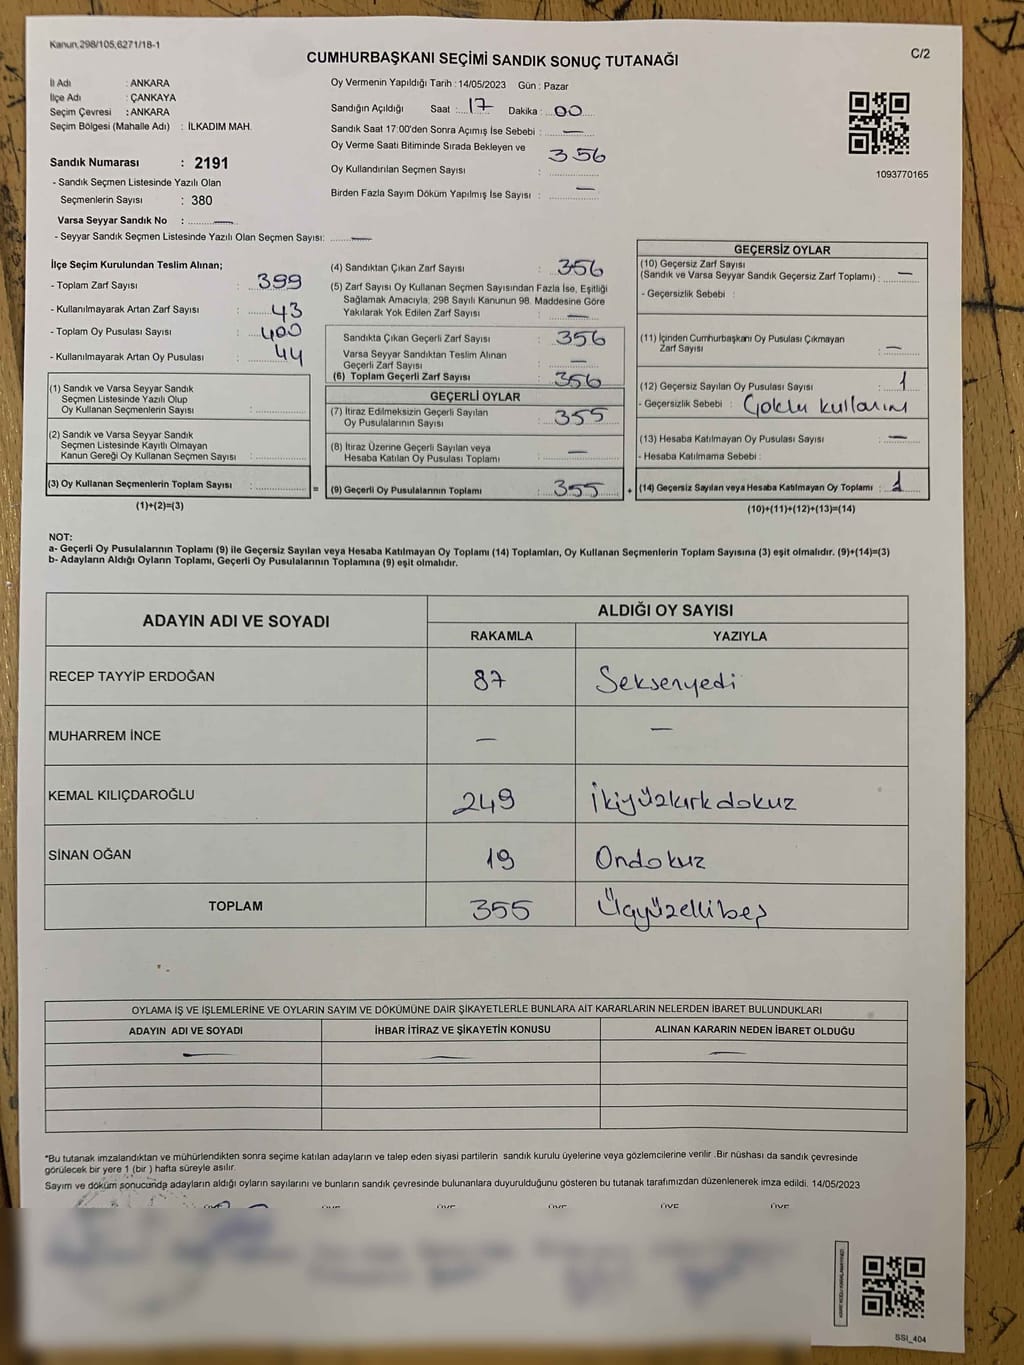 Kanun,298/105,6271/18-1
C/2
CUMHURBAŞKANI SEÇİMİ SANDIK SONUÇ TUTANAĞI
İl Adı : ANKARA
İlçe Adı : ÇANKAYA
Seçim Çevresi : ANKARA
Seçim Bölgesi (Mahalle Adı) : İLKADIM MAH.
Sandık Numarası : 2191
- Sandık Seçmen Listesinde Yazılı Olan
Seçmenlerin Sayısı : 380
Varsa Seyyar Sandık No : —
- Seyyar Sandık Seçmen Listesinde Yazılı Olan Seçmen Sayısı: —
Oy Vermenin Yapıldığı Tarih : 14/05/2023 Gün : Pazar
Sandığın Açıldığı Saat : 17 Dakika : 00
Sandık Saat 17:00'den Sonra Açımış İse Sebebi : —
Oy Verme Saati Bitiminde Sırada Bekleyen ve 356
Oy Kullandırılan Seçmen Sayısı :
Birden Fazla Sayım Döküm Yapılmış İse Sayısı : —
1093770165
İlçe Seçim Kurulundan Teslim Alınan;
- Toplam Zarf Sayısı : 399
- Kullanılmayarak Artan Zarf Sayısı : 43
- Toplam Oy Pusulası Sayısı : 400
- Kullanılmayarak Artan Oy Pusulası : 44
(1) Sandık ve Varsa Seyyar Sandık
Seçmen Listesinde Yazılı Olup
Oy Kullanan Seçmenlerin Sayısı :
(2) Sandık ve Varsa Seyyar Sandık
Seçmen Listesinde Kayıtlı Olmayan
Kanun Gereği Oy Kullanan Seçmen Sayısı :
(3) Oy Kullanan Seçmenlerin Toplam Sayısı :
(1)+(2)=(3)
=
(4) Sandıktan Çıkan Zarf Sayısı : 356
(5) Zarf Sayısı Oy Kullanan Seçmen Sayısından Fazla İse, Eşitliği
Sağlamak Amacıyla; 298 Sayılı Kanunun 98. Maddesine Göre
Yakılarak Yok Edilen Zarf Sayısı : —
Sandıkta Çıkan Geçerli Zarf Sayısı : 356
Varsa Seyyar Sandıktan Teslim Alınan
Geçerli Zarf Sayısı : —
(6) Toplam Geçerli Zarf Sayısı : 356
GEÇERLİ OYLAR
(7) İtiraz Edilmeksizin Geçerli Sayılan
Oy Pusulalarının Sayısı : 355
(8) İtiraz Üzerine Geçerli Sayılan veya
Hesaba Katılan Oy Pusulası Toplamı : —
(9) Geçerli Oy Pusulalarının Toplamı : 355
+
GEÇERSİZ OYLAR
(10) Geçersiz Zarf Sayısı
(Sandık ve Varsa Seyyar Sandık Geçersiz Zarf Toplamı) : —
- Geçersizlik Sebebi :
(11) İçinden Cumhurbaşkanı Oy Pusulası Çıkmayan
Zarf Sayısı : —
(12) Geçersiz Sayılan Oy Pusulası Sayısı : 1
- Geçersizlik Sebebi : Çoklu kullanım
(13) Hesaba Katılmayan Oy Pusulası Sayısı : —
- Hesaba Katılmama Sebebi :
(14) Geçersiz Sayılan veya Hesaba Katılmayan Oy Toplamı : 1
(10)+(11)+(12)+(13)=(14)
NOT:
a- Geçerli Oy Pusulalarının Toplamı (9) ile Geçersiz Sayılan veya Hesaba Katılmayan Oy Toplamı (14) Toplamları, Oy Kullanan Seçmenlerin Toplam Sayısına (3) eşit olmalıdır. (9)+(14)=(3)
b- Adayların Aldığı Oyların Toplamı, Geçerli Oy Pusulalarının Toplamına (9) eşit olmalıdır.
ADAYIN ADI VE SOYADI ALDIĞI OY SAYISI
RAKAMLA YAZIYLA
RECEP TAYYİP ERDOĞAN 87 Seksenyedi
MUHARREM İNCE — —
KEMAL KILIÇDAROĞLU 249 İkiyüzkırkdokuz
SİNAN OĞAN 19 Ondokuz
TOPLAM 355 Üçyüzellibeş
OYLAMA İŞ VE İŞLEMLERİNE VE OYLARIN SAYIM VE DÖKÜMÜNE DAİR ŞİKAYETLERLE BUNLARA AİT KARARLARIN NELERDEN İBARET BULUNDUKLARI
ADAYIN ADI VE SOYADI İHBAR İTİRAZ VE ŞİKAYETİN KONUSU ALINAN KARARIN NEDEN İBARET OLDUĞU
— — —
*Bu tutanak imzalandıktan ve mühürlendikten sonra seçime katılan adayların ve talep eden siyasi partilerin sandık kurulu üyelerine veya gözlemcilerine verilir .Bir nüshası da sandık çevresinde
görülecek bir yere 1 (bir ) hafta süreyle asılır.
Sayım ve döküm sonucunda adayların aldığı oyların sayılarını ve bunların sandık çevresinde bulunanlara duyurulduğunu gösteren bu tutanak tarafımızdan düzenlenerek imza edildi. 14/05/2023
ÜYE ÜYE ÜYE ÜYE ÜYE
SSI_404